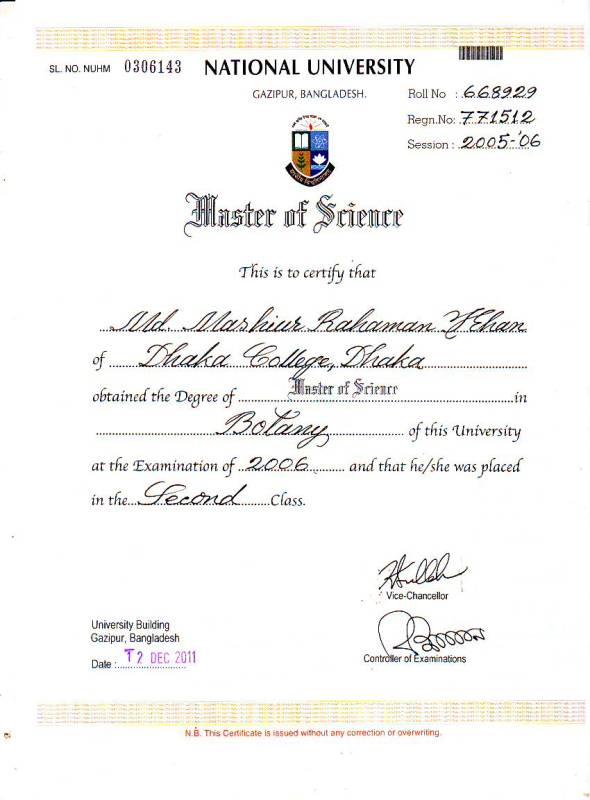 SL. NO. NUHM 0306143
NATIONAL UNIVERSITY
GAZIPUR, BANGLADESH.
Roll No : 668929
Regn.No: 771512
Session : 2005-'06
Master of Science
This is to certify that
Md. Mashiur Rahaman Khan
of Dhaka College, Dhaka
obtained the Degree of Master of Science in
Botany of this University
at the Examination of 2006 and that he/she was placed
in the Second Class.
Vice-Chancellor
University Building
Gazipur, Bangladesh
Date : 12 DEC 2011
Controller of Examinations
N.B. This Certificate is issued without any correction or overwriting.